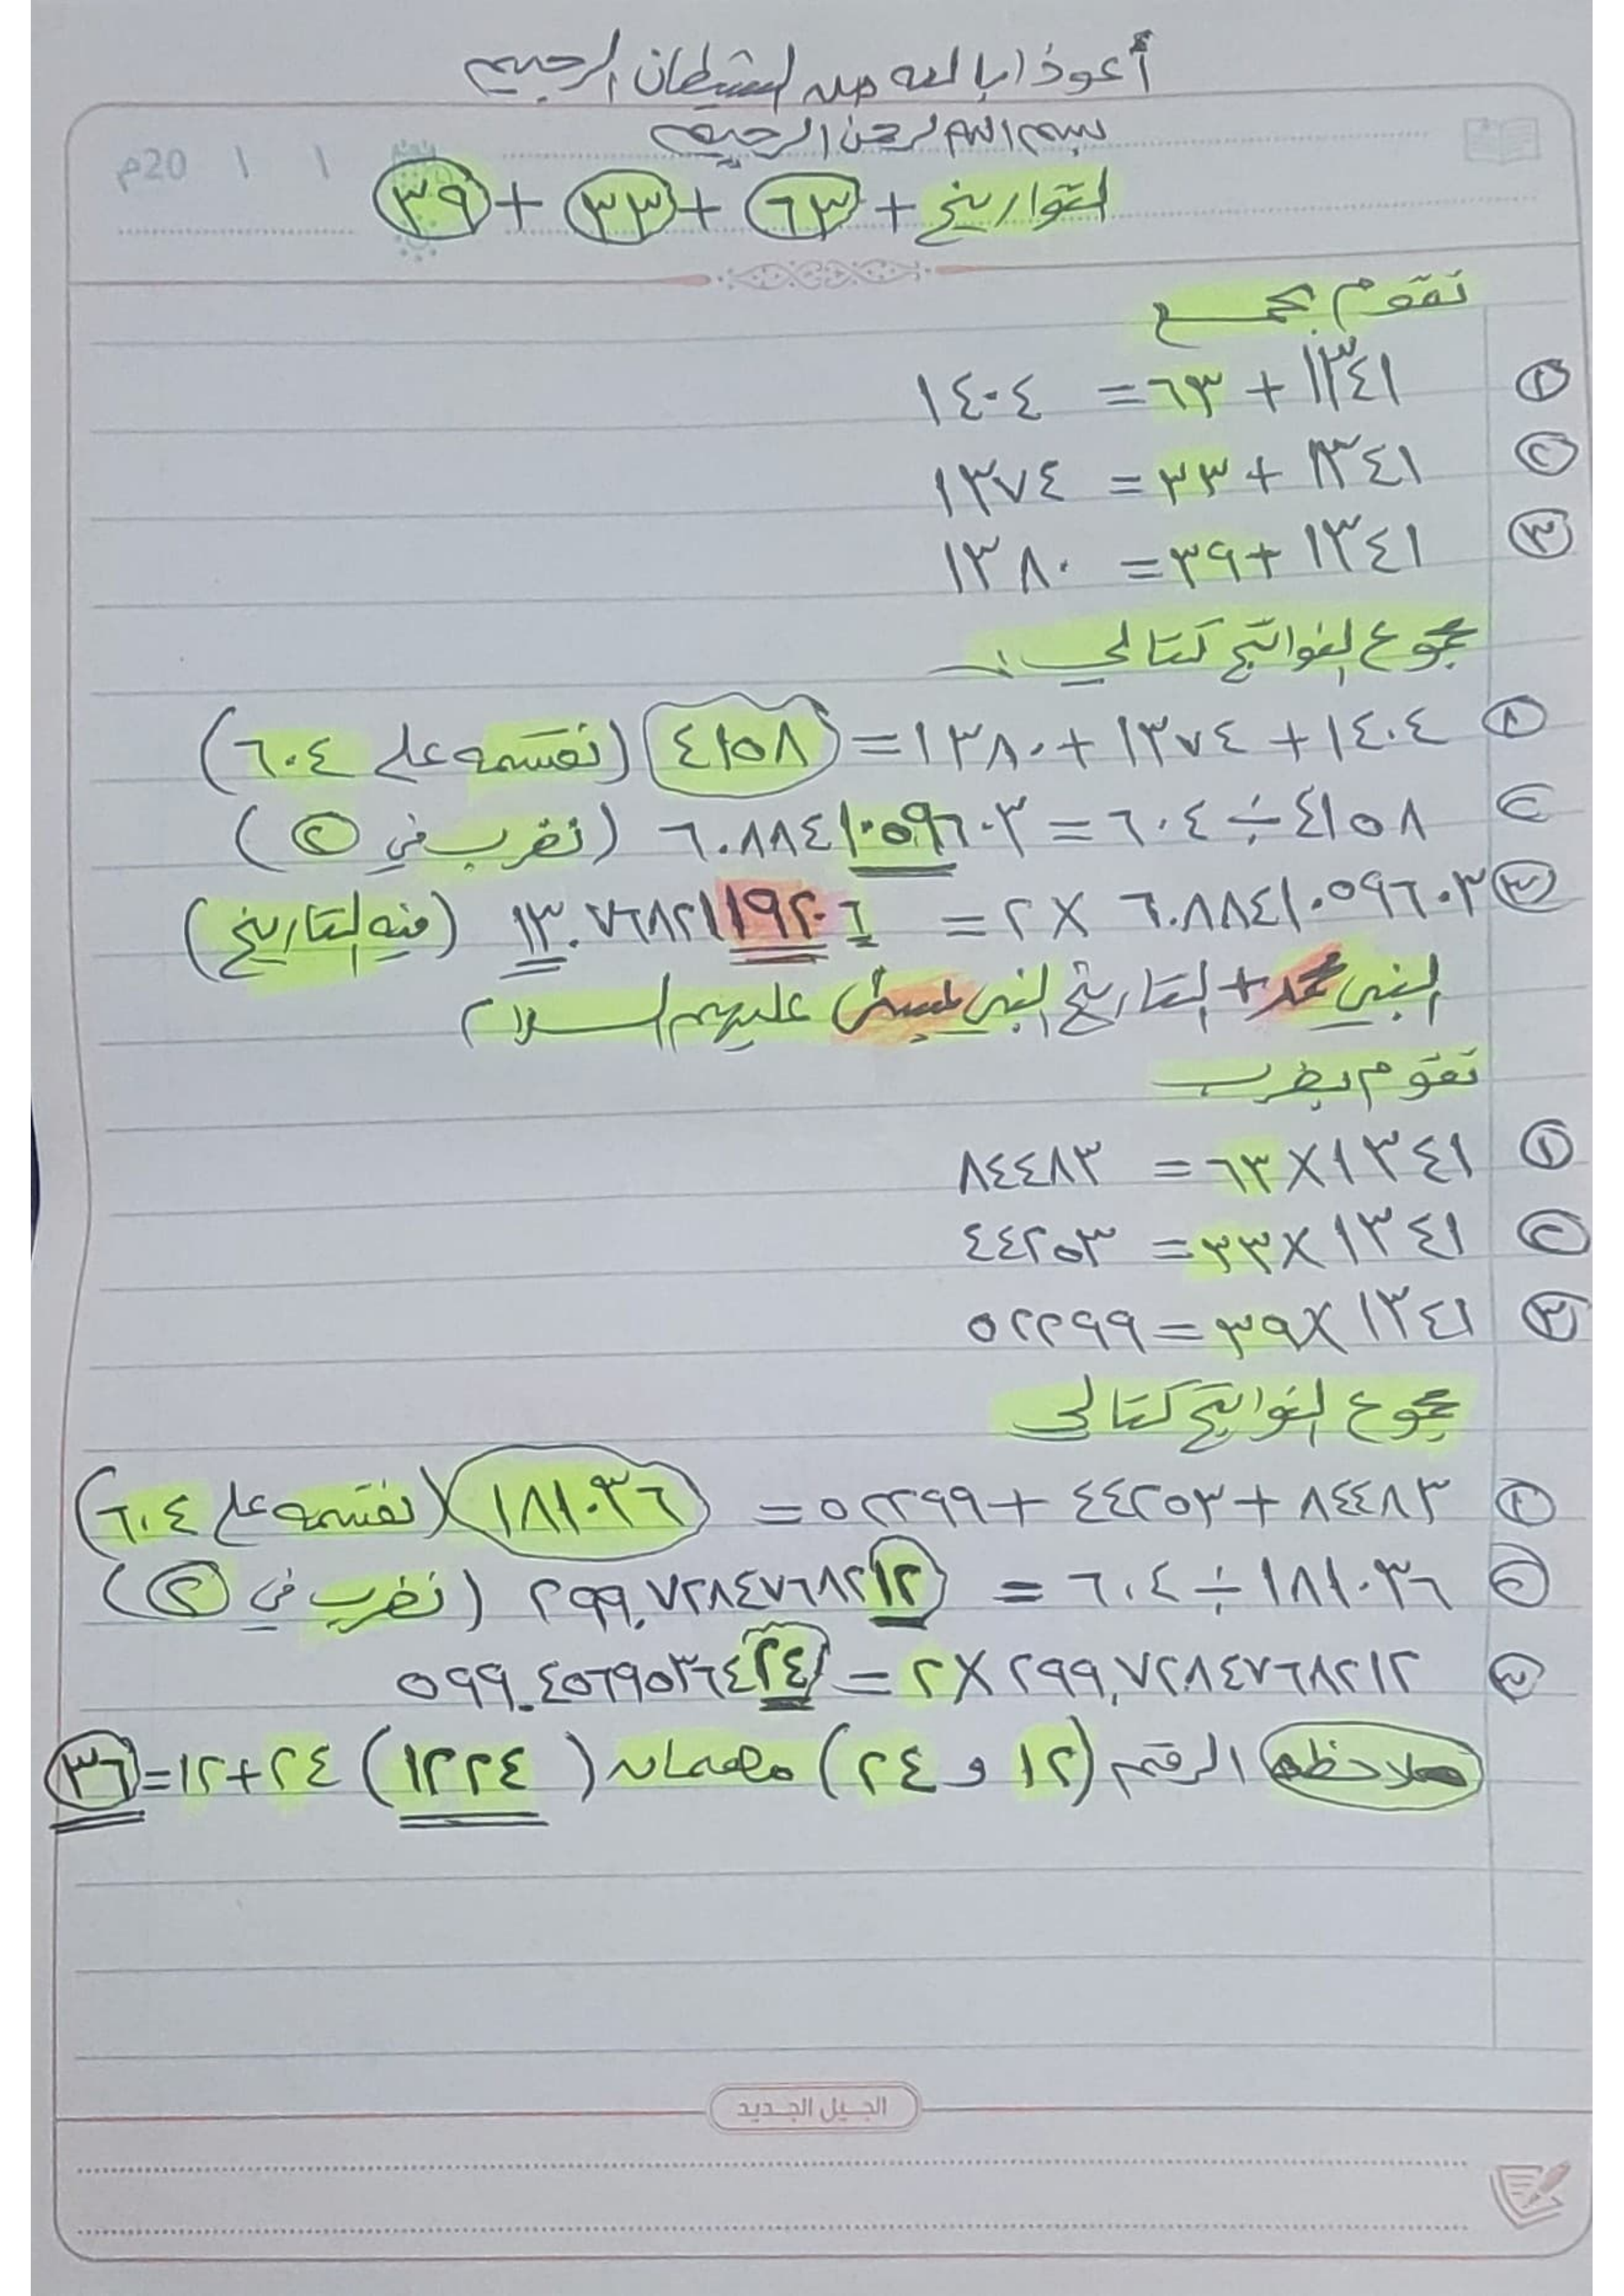 أعوذ بالله من الشيطان الرجيم
بسم الله الرحمن الرحيم
١ ١ 20م
التواريخ + ٦٣ + ٣٣ + ٣٩
نقوم بجمع
① ١٣٤١ + ٦٣ = ١٤٠٤
② ١٣٤١ + ٣٣ = ١٣٧٤
③ ١٣٤١ + ٣٩ = ١٣٨٠
مجموع النواتج كتالي :
① ١٤٠٤ + ١٣٧٤ + ١٣٨٠ = ٤١٥٨ (نقسمه على ٦٠٤)
② ٤١٥٨ ÷ ٦٠٤ = ٦.٨٨٤١٠٥٩٦٠٣ (نضرب في ٢)
③ ٦.٨٨٤١٠٥٩٦٠٣ × ٢ = ١٣.٧٦٨٢١١٩٢٠٦ (فيه التاريخ)
النبي محمد + التاريخ النبي عيسى عليهم السلام
نقوم بضرب
① ١٣٤١ × ٦٣ = ٨٤٤٨٣
② ١٣٤١ × ٣٣ = ٤٤٢٥٣
③ ١٣٤١ × ٣٩ = ٥٢٢٩٩
مجموع النواتج كتالي
① ٨٤٤٨٣ + ٤٤٢٥٣ + ٥٢٢٩٩ = ١٨١٠٣٦ (نقسمه على ٦٠٤)
② ١٨١٠٣٦ ÷ ٦٠٤ = ٢٩٩.٧٢٨٤٧٦٨٢١٢ (نضرب في ٢)
③ ٢٩٩.٧٢٨٤٧٦٨٢١٢ × ٢ = ٥٩٩.٤٥٦٩٥٣٦٤٢٤
ملاحظه الرقم (١٢ و ٢٤) مهمان (١٢٢٤) ٢٤+١٢=٣٦
الجيل الجديد